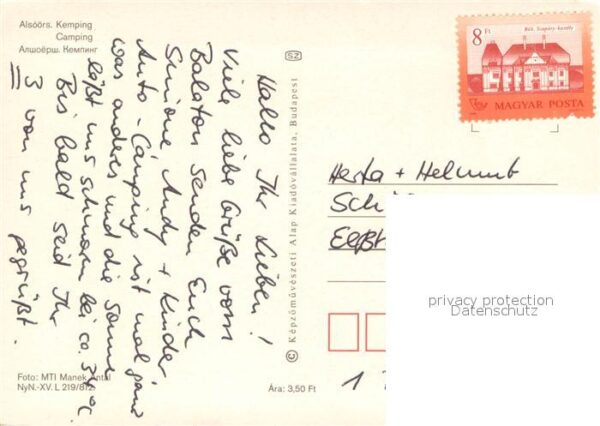 Alsóörs. Kemping
Camping
Алшоёрш. Кемпинг
Hallo Ihr Lieben!
Viele liebe Grüße vom
Balaton senden Euch
Simone Andy + Kinder
Auto-Camping ist mal ganz
was anderes und die Sonne
läßt uns schmoren bei ca. 34°C.
Bis bald seid Ihr
3 von uns gegrüßt.
Foto: MTI Manek Antal
NyN.-XV. L 219/872.
SZ
© Képzőművészeti Alap Kiadóvállalata, Budapest
Ára: 3,50 Ft
8 Ft
Bük, Szapáry-kastély
MAGYAR POSTA
Herta + Helmut
privacy protection
Datenschutz
1